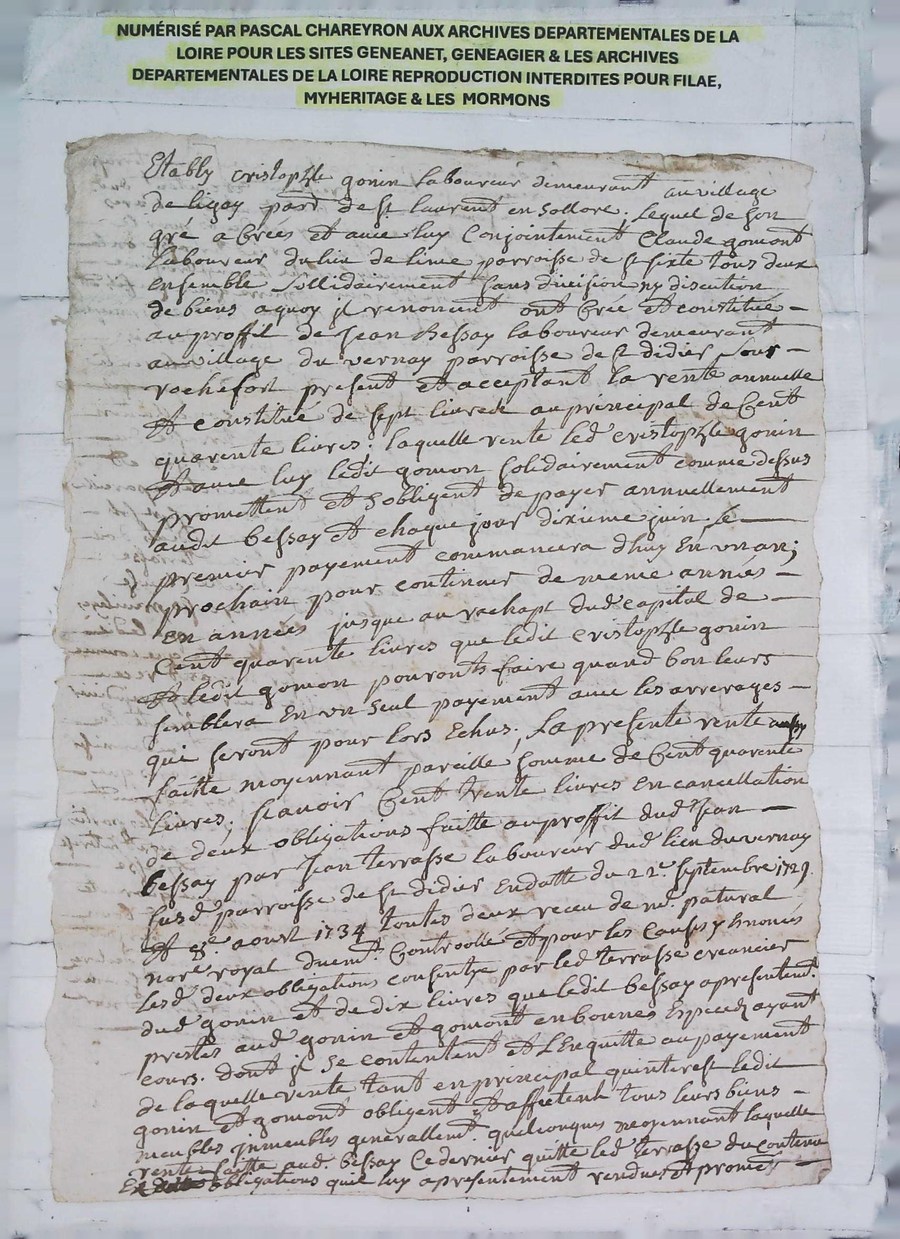 NUMÉRISÉ PAR PASCAL CHAREYRON AUX ARCHIVES DEPARTEMENTALES DE LA
LOIRE POUR LES SITES GENEANET, GENEAGIER & LES ARCHIVES
DEPARTEMENTALES DE LA LOIRE REPRODUCTION INTERDITES POUR FILAE,
MYHERITAGE & LES MORMONS
Etably cristophle gonin laboureur demeurant au village
de ligay parr de st laurent en Sollore. Lequel de son
gré a Crées et avec luy Conjointement Claude gomont
laboureur du lieu de parroisse de st sixte tous deux
ensemble sollidairement sans division ny discution
de biens a quoy jl renoncent ont Crée et constitué
au proffit de Jean Bessay laboureur demeurant
au village du vernay parroisse de st didier sous
rochefort present et acceptant la rente annuelle
Et constitué de sept livres de au principal de Cent
quarente livres; laquelle rente led cristophle gonin
Et avec luy ledit gomon solidairement comme dessus
promettent et sobligent de payer annuellement
audit bessay et chaque jour dixieme juin le
premier payement commancera dhuy En un an;
prochain pour continuer de meme années
en années jusque au rachapt dud capital de
Cent quarente livres que ledit cristophle gonin
Et ledit gomon pouront faire quand bon leurs
semblera En un seul payement avec les arrerages
qui seront pour lors Echus; La presente rente
faitte moyennant pareille somme de Cent quarente
livres; scavoir Cent trente livres en cancellation
de deux obligations faitte au proffit dud Jean
bessay par Jean terrasse laboureur dud lieu du vernay
susd parroisse de st didier En datte du 22e septembre 1729
Et aoust 1734 toutes deux receu de me patural
nore royal duemt Controollé et pour les Causes y Enoncés
lesd deux obligations par led terrasse creancier
dud gonin et de dix livres que ledit bessay a presentemt
prestés aud gonin et gomont en bonnes Especes ayant
cours. dont jl se contentent et lEnquitte au payement
de laquelle rente tant en principal quinterest ledit
gonin et gomont obligent et affectent tous leurs biens
meubles jnmeubles generallemt quelconques moyennant laquelle
rente faitte aud. bessay Ce dernier quitte led terrasse du contenu
obligations quil luy a presentement rendues Et promet